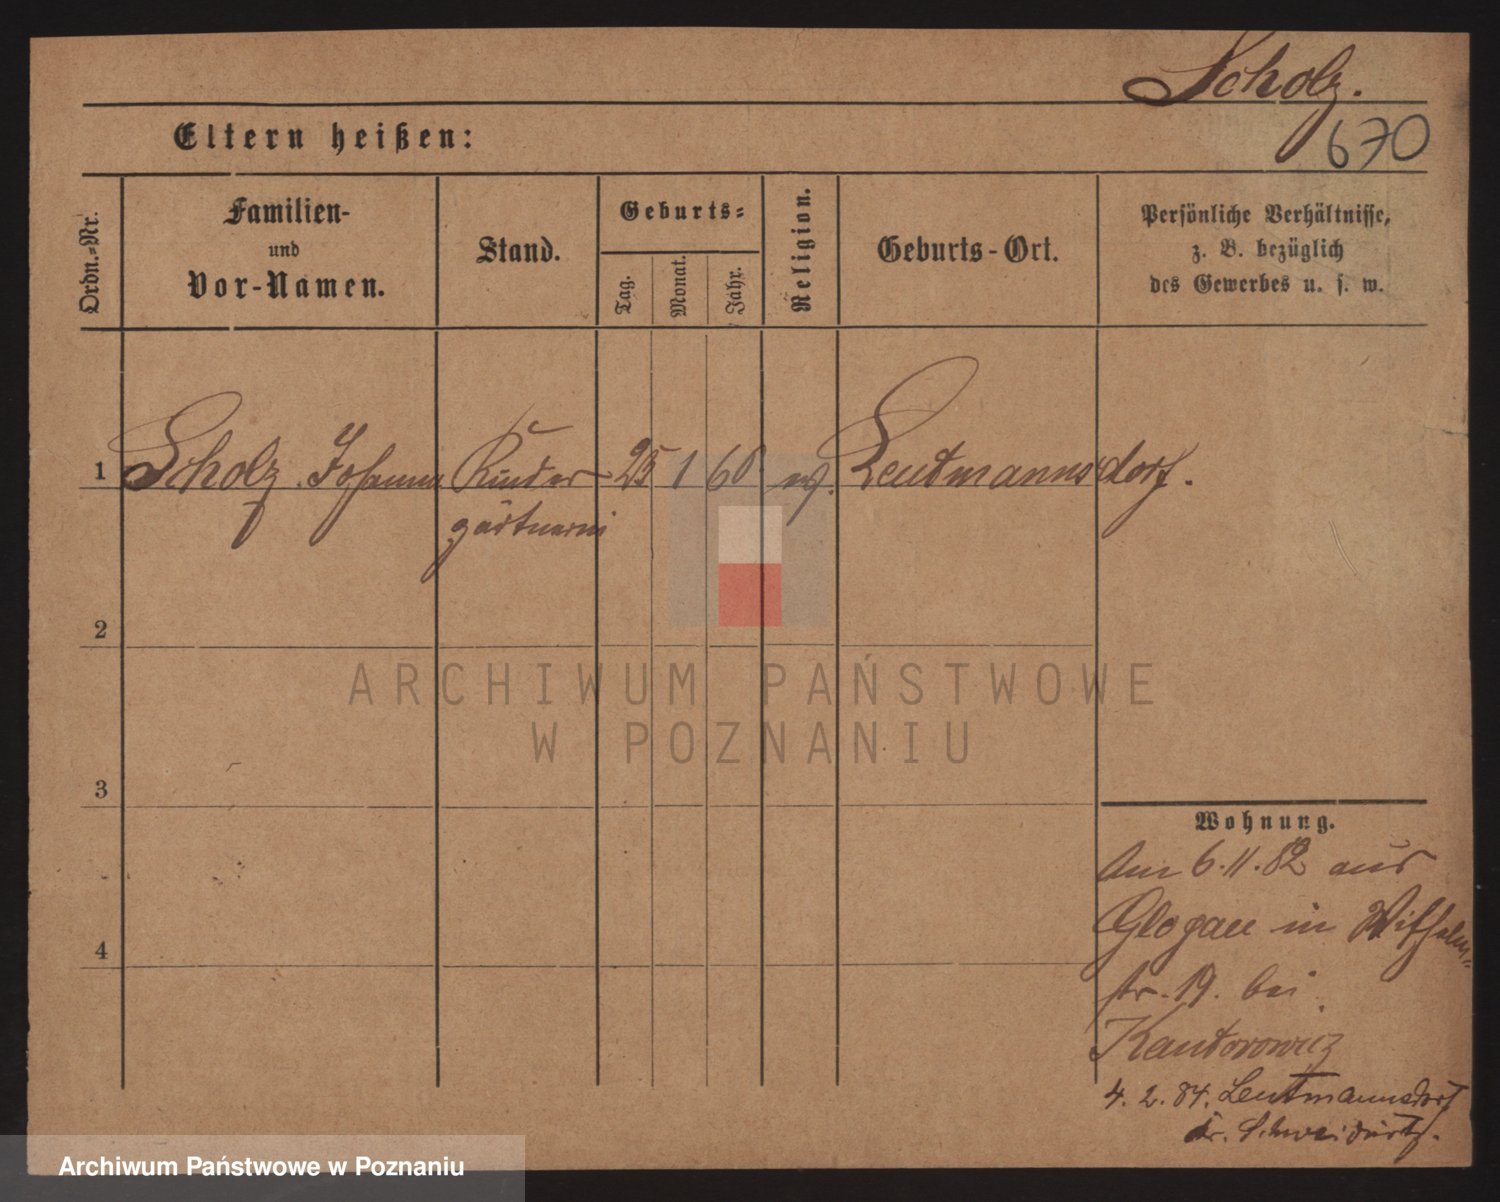 Scholz.
670
Eltern heißen:
Ordn.-Nr.
Familien-
und
Vor-Namen.
Stand.
Geburts-
Tag.
Monat.
Jahr.
Religion.
Geburts-Ort.
Persönliche Verhältnisse,
z. B. bezüglich
des Gewerbes u. s. w.
1 Scholz Johanna Kinder 25 1 60 ev. Leutmannsdorf.
gärtnerin
2
ARCHIWUM PAŃSTWOWE
W POZNANIU
3
Wohnung.
Am 6.11.82 aus
Glogau in Wilhelm-
4
str. 19. bei
Kantorowicz
4. 2. 84. Leutmannsdorf
Kr. Schweidnitz.
Archiwum Państwowe w Poznaniu